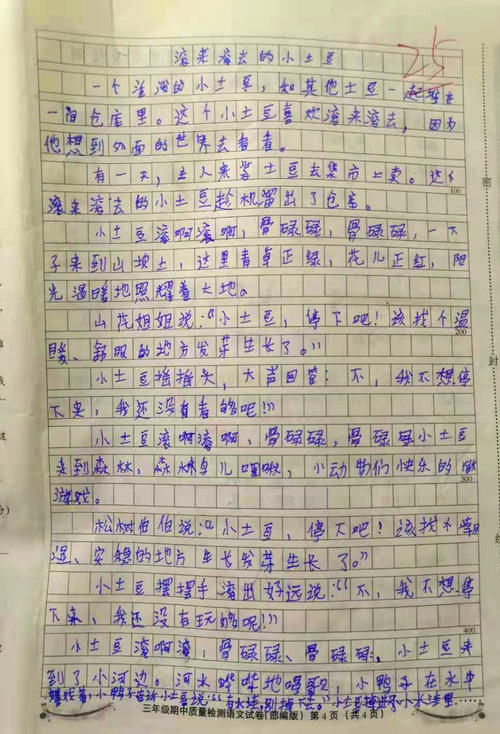 25
滚来滚去的小土豆
一个滚圆的小土豆，和其他土豆一起住在
一间仓库里。这个小土豆喜欢滚来滚去，因为
他想到外面的世界去看看。
有一天，主人来装土豆去集市上卖。这个
滚来滚去的小土豆趁机溜出了仓库。
100
小土豆滚啊滚啊，骨碌碌，骨碌碌，一下
子来到山坡上，这里青草正绿，花儿正红，阳
光温暖地照耀着大地。
山花姐姐说：“小土豆，停下吧！该找个温
200
暖、舒服的地方发芽生长了。”
小土豆摇摇头，大声回答：不，我不想停
下来，我还没有看的够呢！”
小土豆滚啊滚啊、骨碌碌，骨碌碌小土豆
来到森林，森林鸟儿唱歌，小动物们快乐的做
300
游戏。
松树伯伯说：“小土豆，停下吧！该找个
温、安稳的地方生长发芽生长了。”
小土豆摆摆手滚出好远说：“不，我不想停
下来，我还没有玩的够呢！”
400
小土豆滚啊滚，骨碌碌、骨碌碌，小土豆来
到了小河边。河水哗哗地唱歌，小鸭子在水中
小鸭子告诉小土豆说“有水洼，别掉下去。”小土豆掉进小水洼里
三年级期中质量检测语文试卷（部编版） 第4页（共4页）
密
封
线